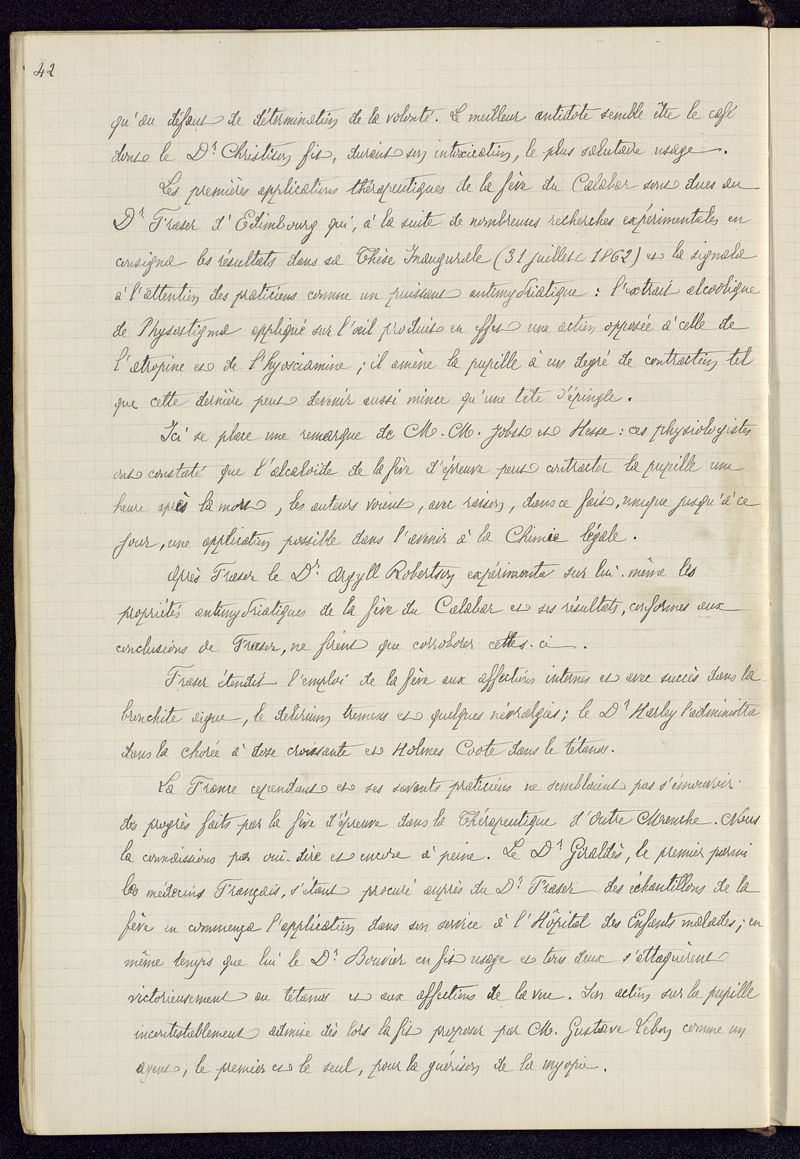 42
qu'au défaut de détermination de la volonté. Le meilleur antidote semble être le café
dont le Dr Christison fit, durant son intoxication, le plus salutaire usage.
Les premières applications thérapeutiques de la fève du Calabar sont dues au
Dr Fraser d'Edimbourg qui, à la suite de nombreuses recherches expérimentales en
consigna les résultats dans sa Thèse Inaugurale (31 juillet 1862) et la signala
à l'attention des praticiens comme un puissant antimydriatique : l'extrait alcoolique
de Physostigma appliqué sur l'œil produit en effet une action opposée à celle de
l'atropine et de l'hyosciamine ; il amène la pupille à un degré de contraction tel
que cette dernière peut devenir aussi mince qu'une tête d'épingle.
Ici se place une remarque de M. M. Jobst et Hesse : ces physiologistes
ont constaté que l'alcaloïde de la fève d'épreuve peut contracter la pupille une
heure après la mort, les auteurs voient, avec raison, dans ce fait, unique jusqu'à ce
jour, une application possible dans l'avenir à la Chimie légale.
Après Fraser le Dr Argyll Robertson expérimenta sur lui-même les
propriétés antimydriatiques de la fève du Calabar et ses résultats, conformes aux
conclusions de Fraser, ne firent que corroborer celles-ci.
Fraser étendit l'emploi de la fève aux affections internes et avec succès dans la
bronchite aigue, le delirium tremens et quelques névralgies ; le Dr Harley l'administra
dans la chorée à dose croissante et Holmes Coote dans le tétanos.
La France cependant et ses savants praticiens ne semblaient pas s'émouvoir
des progrès faits par la fève d'épreuve dans la Thérapeutique d'Outre Manche. Nous
la connaissions par oui-dire et encore à peine. Le Dr Giraldès, le premier parmi
les médecins Français, s'étant procuré auprès du Dr Fraser des échantillons de la
fève en commença l'application dans son service à l'Hôpital des Enfants malades ; en
même temps que lui le Dr Bouvier en fit usage et tous deux s'attaquèrent
victorieusement au tétanos et aux affections de la vue. Son action sur la pupille
incontestablement admise dès lors la fit proposer par M. Gustave Lebon comme un
agent, le premier et le seul, pour la guérison de la myopie.